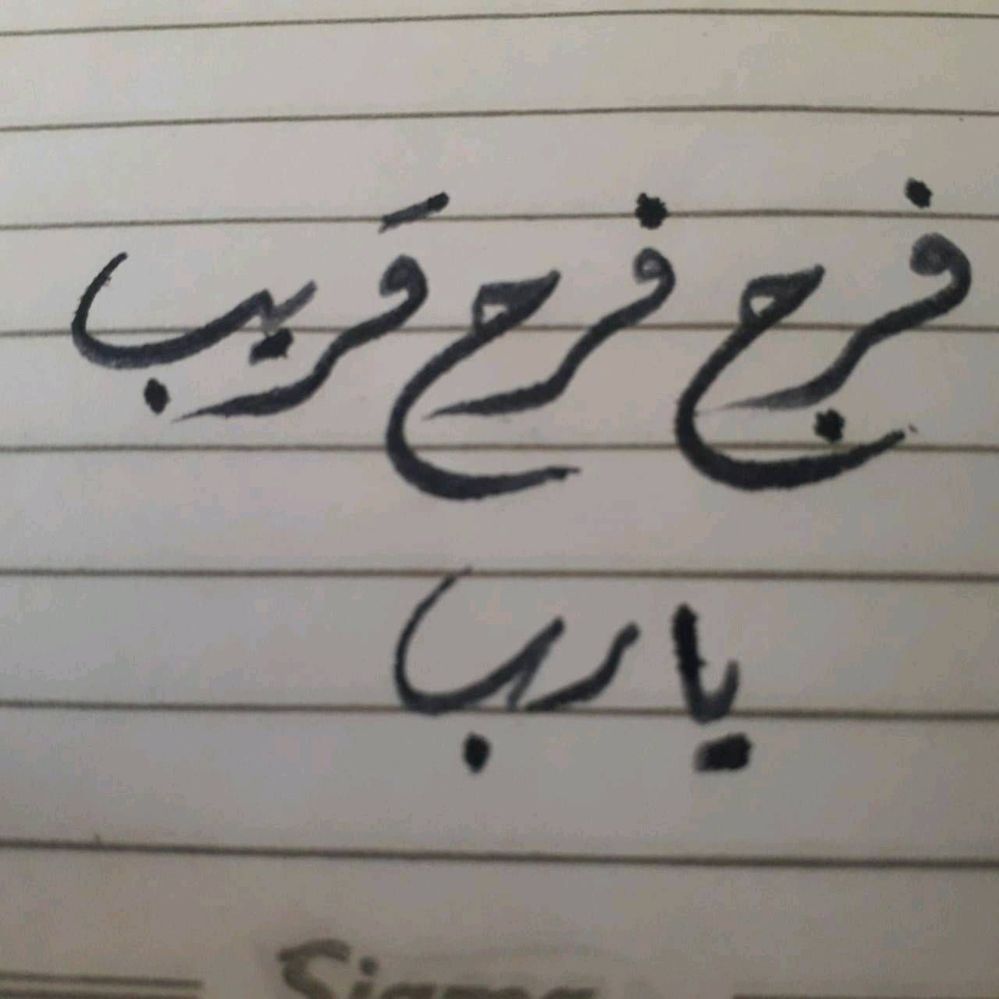 فرج فرح قريب
يا رب
Sigma